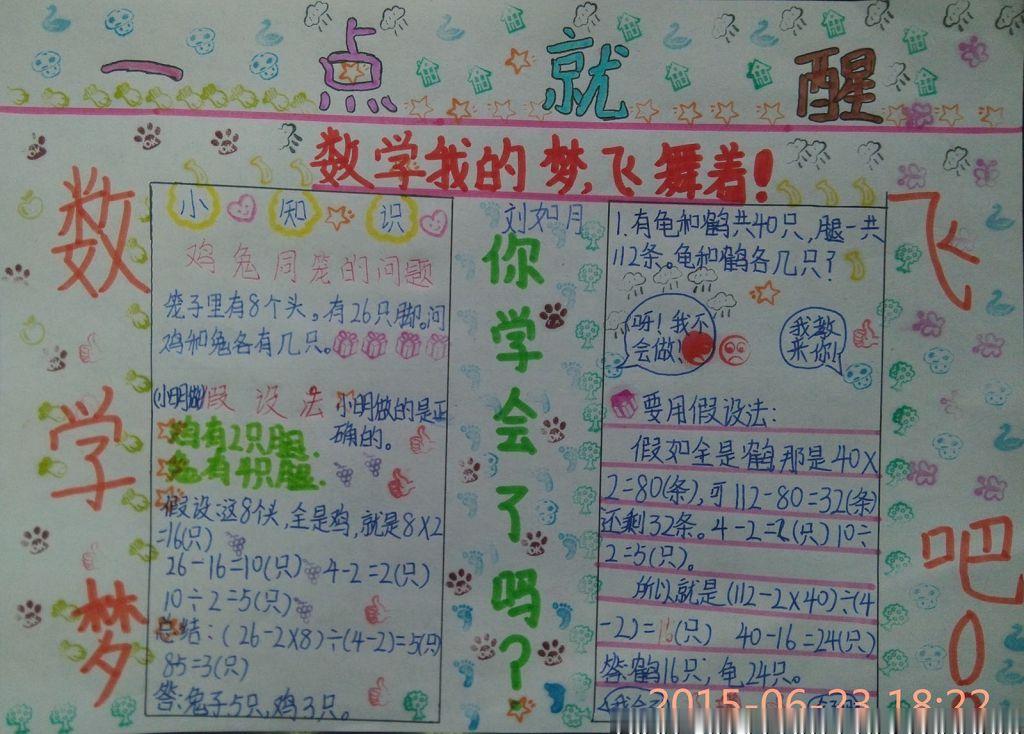 一点就醒
数学我的梦,飞舞着!
数学梦
飞吧
小知识
鸡兔同笼的问题
笼子里有8个头。有26只脚。问
鸡和兔各有几只。
小明做
假设法
小明做的是正
确的。
鸡有2只腿.
兔有4只腿.
假设:这8个头,全是鸡,就是8×2
=16(只)
26-16=10(只) 4-2=2(只)
10÷2=5(只)
总结:(26-2×8)÷(4-2)=5(只)
85=3(只)
答:兔子5只,鸡3只。
刘如月
你学会了吗?
1.有龟和鹤共40只,腿一共
112条。龟和鹤各几只?
呀!我不
会做!
我教
来你!
要用假设法:
假如全是鹤,那是40×
2=80(条),可112-80=32(条)
还剩32条。4-2=2(只)10÷
2=5(只)。
所以就是(112-2×40)÷(4
-2)=16(只) 40-16=24(只)
答:鹤16只;龟,24只。
2015-06-23 18:22